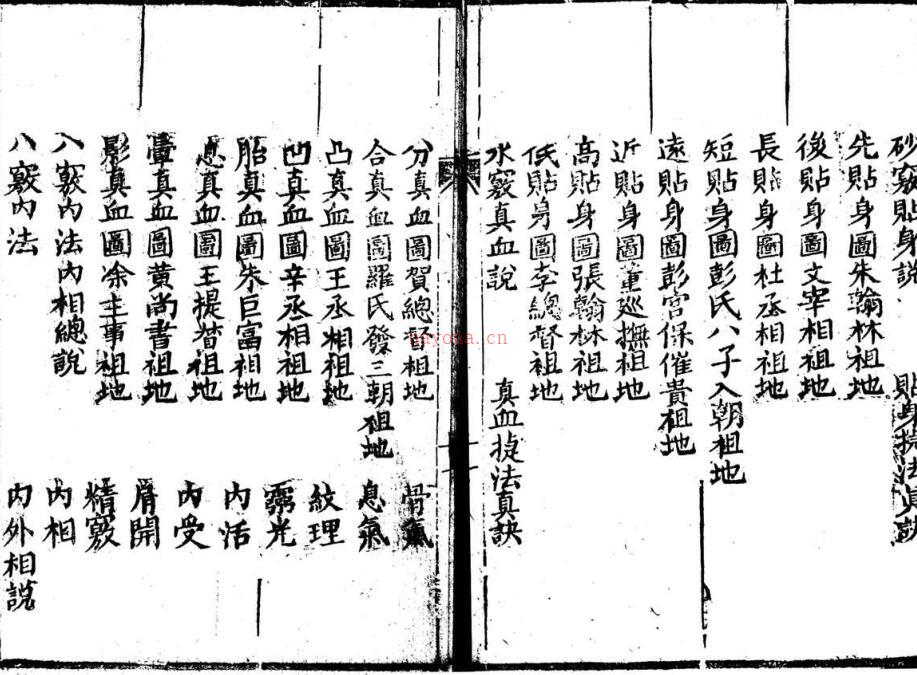 砂竅貼身説　貼身捷法真訣
先貼身圖朱翰林祖地
後貼身圖文宰相祖地
長貼身圖杜丞相祖地
短貼身圖彭氏八子入朝祖地
遠貼身圖彭宫保催貴祖地
近貼身圖董廵撫祖地
高貼身圖張翰林祖地
低貼身圖李總督祖地
水竅真血說　真血捷法真訣
分真血圖賀總督祖地　骨氣
合真血圖羅氏發三朝祖地　息氣
凸真血圖王丞相祖地　紋理
凹真血圖辛丞相祖地　霛光
胎真血圖朱巨富祖地　内活
息真血圖王提督祖地　内受
暈真血圖黄尚書祖地　開
影真血圖余主事祖地　精竅
八竅内法内相總說　内相
八竅内法　内外相說
nayona.cn